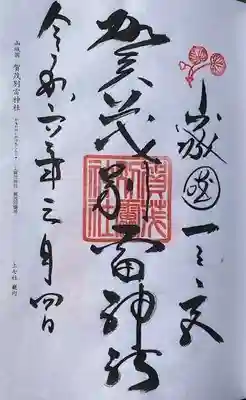 山城國 一之宮
賀茂別雷神社
賀茂別雷神社
令和六年三月四日
山城國 賀茂別雷神社